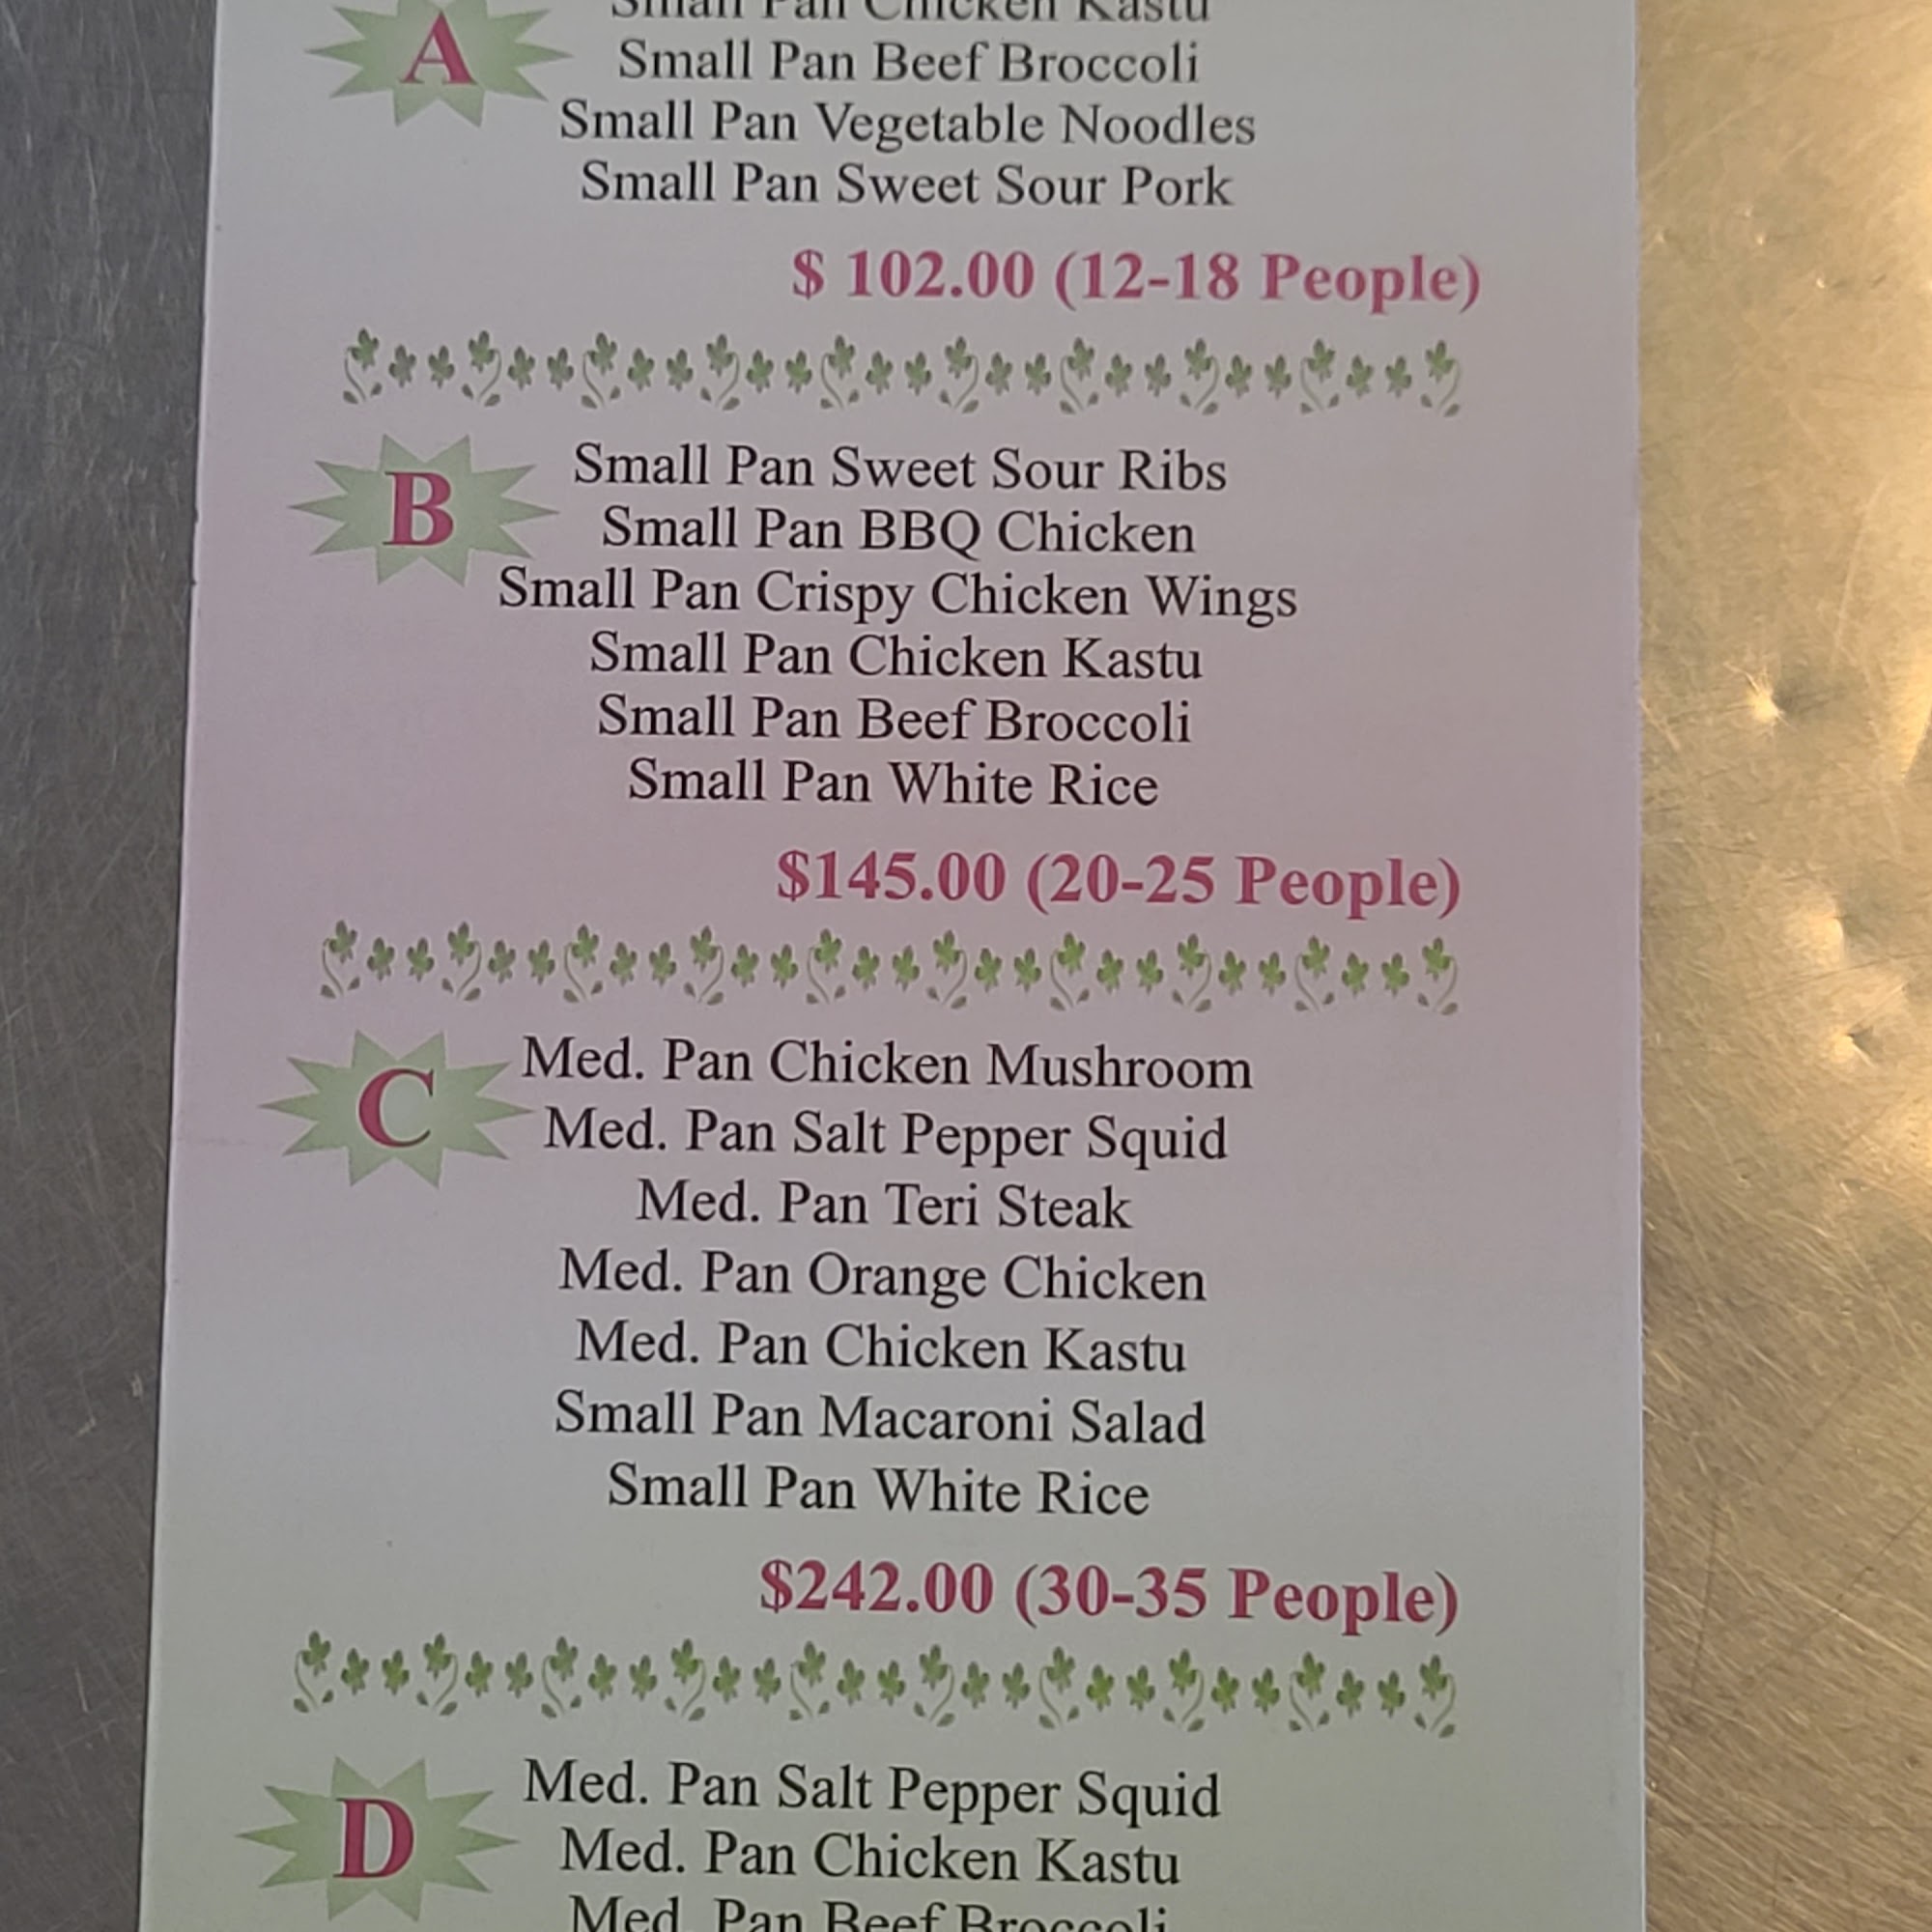 A
Small Pan Chicken Kastu
Small Pan Beef Broccoli
Small Pan Vegetable Noodles
Small Pan Sweet Sour Pork
$ 102.00 (12-18 People)
B
Small Pan Sweet Sour Ribs
Small Pan BBQ Chicken
Small Pan Crispy Chicken Wings
Small Pan Chicken Kastu
Small Pan Beef Broccoli
Small Pan White Rice
$145.00 (20-25 People)
C
Med. Pan Chicken Mushroom
Med. Pan Salt Pepper Squid
Med. Pan Teri Steak
Med. Pan Orange Chicken
Med. Pan Chicken Kastu
Small Pan Macaroni Salad
Small Pan White Rice
$242.00 (30-35 People)
D
Med. Pan Salt Pepper Squid
Med. Pan Chicken Kastu
Med. Pan Beef Broccoli